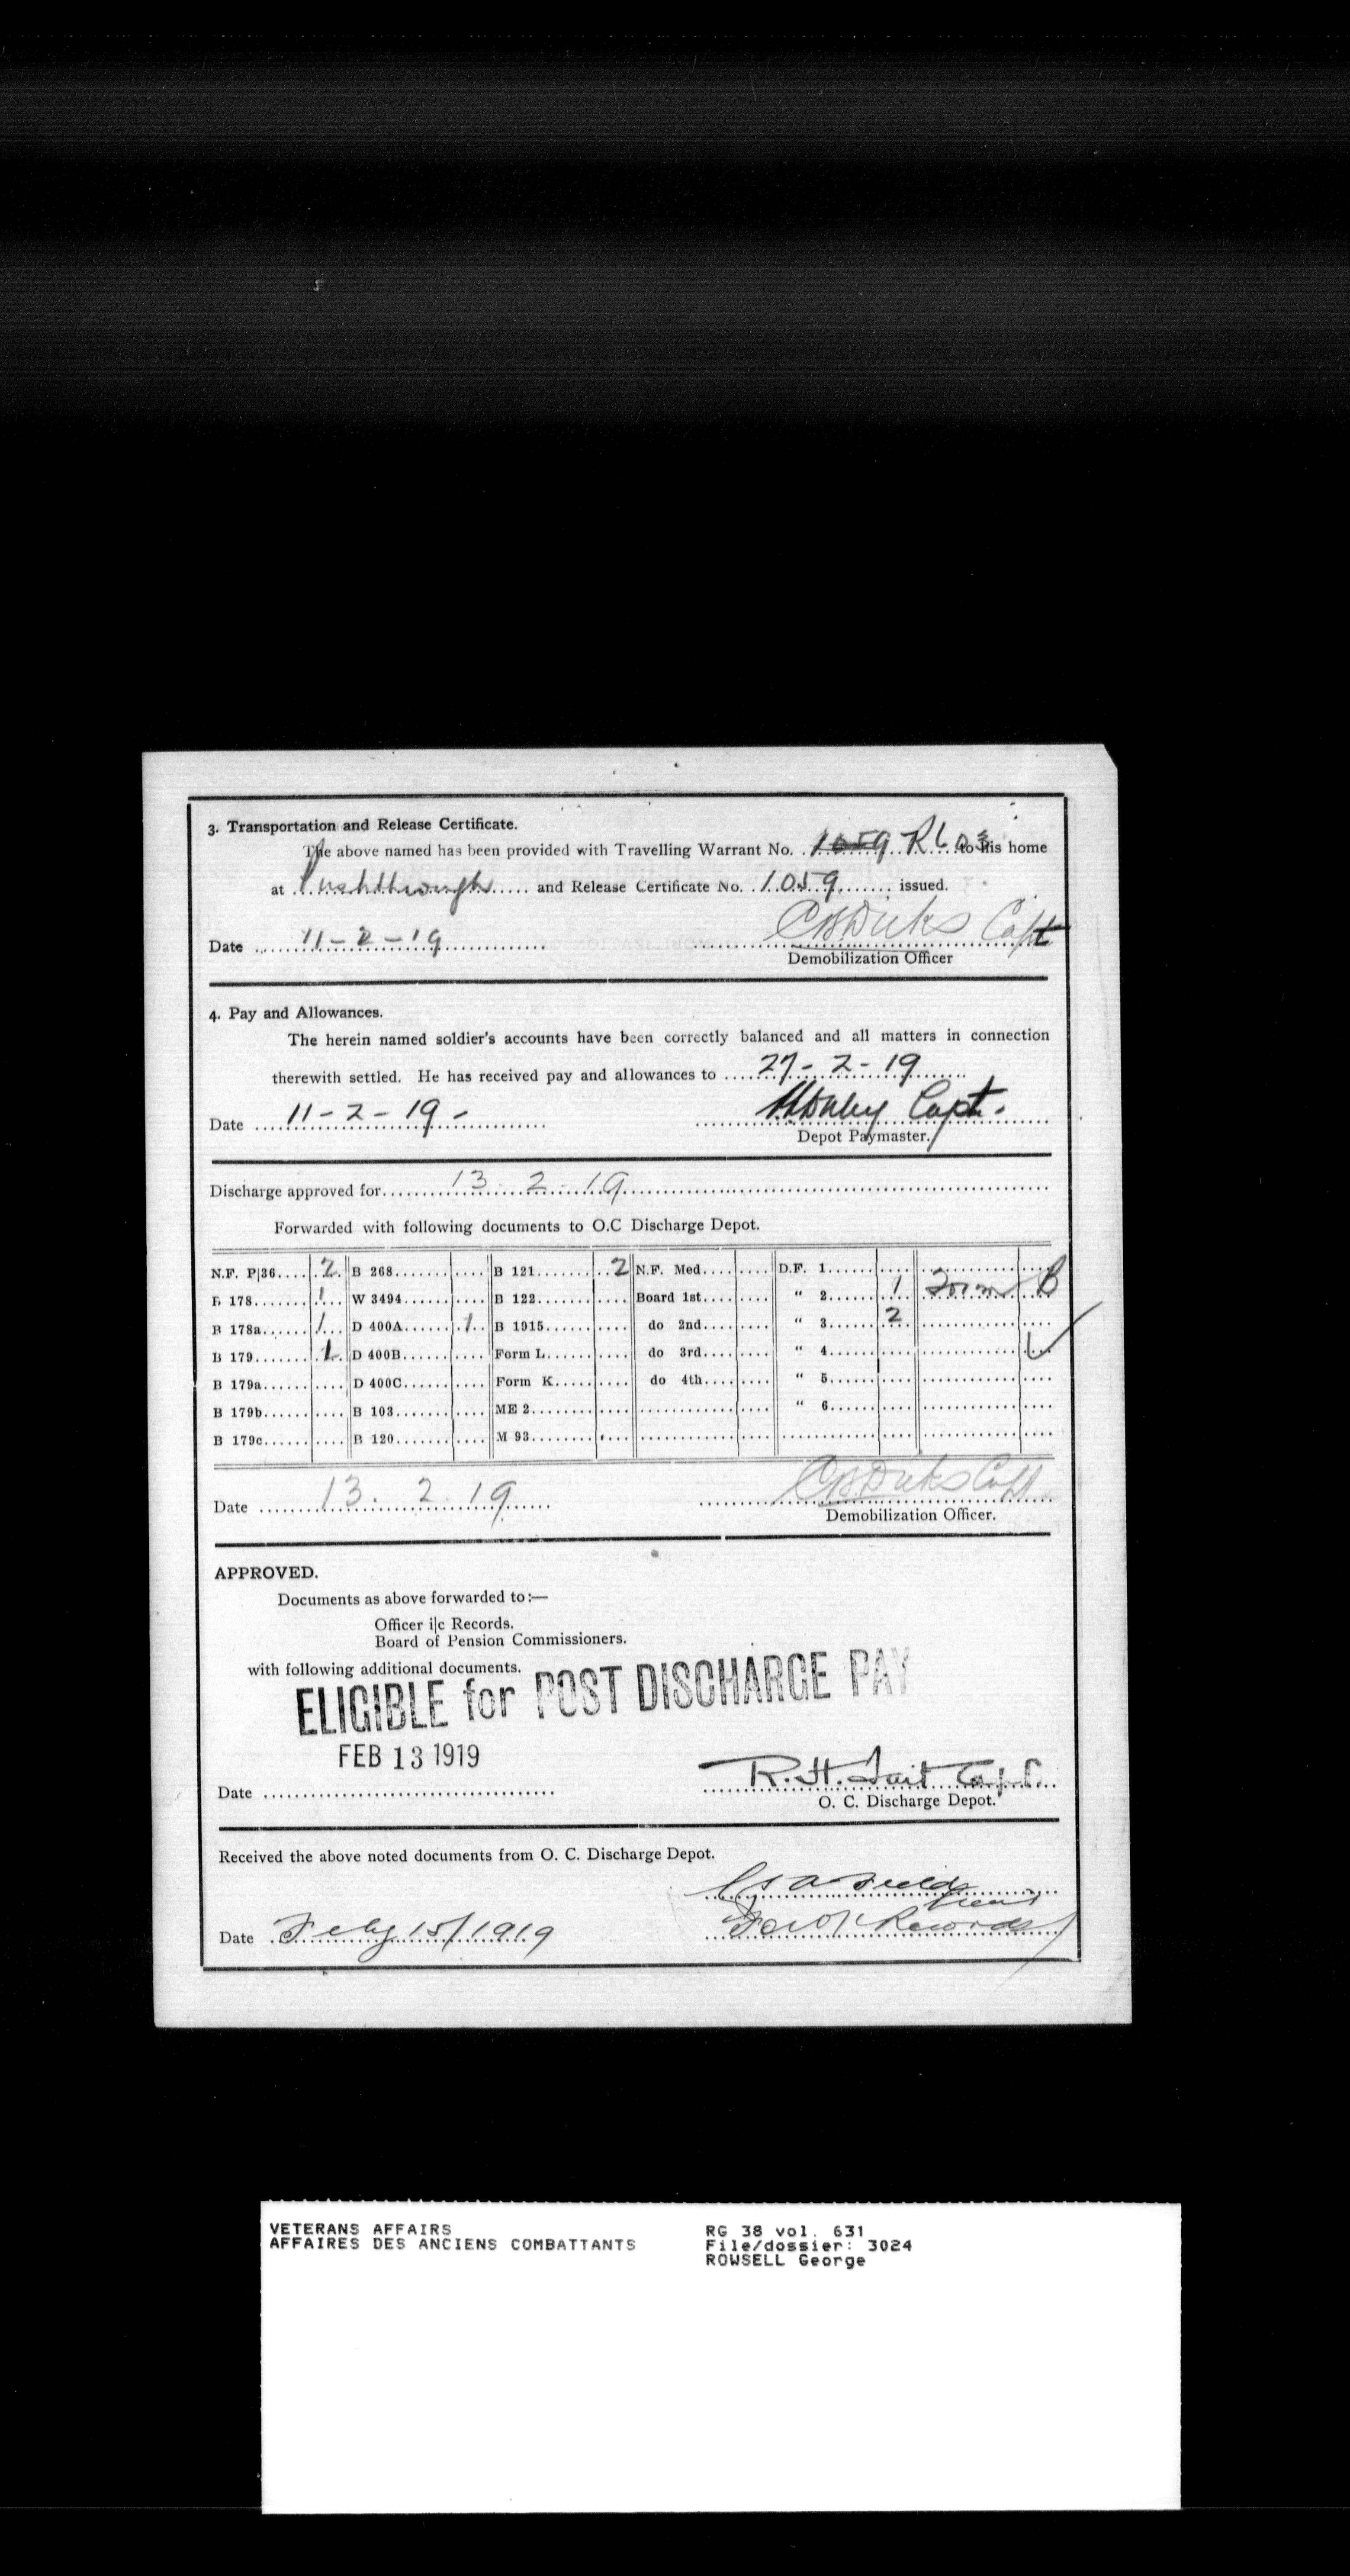 3. Transportation and Release Certificate.
The above named has been provided with Travelling Warrant No. 1059 R to his home
at Pushthrough and Release Certificate No. 1059 issued.
Date 11-2-19 Capt
Demobilization Officer
4. Pay and Allowances.
The herein named soldier's accounts have been correctly balanced and all matters in connection
therewith settled. He has received pay and allowances to 27-2-19
Date 11-2-19- Capt.
Depot Paymaster.
Discharge approved for 13.2.19
Forwarded with following documents to O.C Discharge Depot.
N.F. P|36 2 B 268 B 121 2 N.F. Med. D.F. 1
B 178 1 W 3494 B 122 Board 1st " 2 1 Form B
B 178a 1 D 400A 1 B 1915 do 2nd " 3 2
B 179 1 D 400B Form L do 3rd " 4
B 179a D 400C Form K do 4th " 5
B 179b B 103 ME 2 " 6
B 179c B 120 M 93
Date 13.2.19 Capt
Demobilization Officer.
APPROVED.
Documents as above forwarded to:—
Officer i|c Records.
Board of Pension Commissioners.
with following additional documents.
ELIGIBLE for POST DISCHARGE PAY
FEB 13 1919
Date R.H. Tait Capt.
O. C. Discharge Depot.
Received the above noted documents from O. C. Discharge Depot.
Date Feby 15/1919 Records
VETERANS AFFAIRS
AFFAIRES DES ANCIENS COMBATTANTS
RG 38 vol. 631
File/dossier: 3024
ROWSELL George